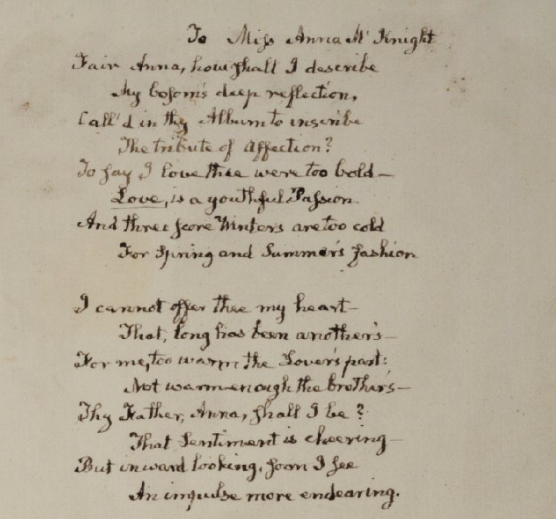 To Miſs Anna Mc Knight
Fair Anna, how ſhall I describe
My boſom's deep reflection,
Call'd in thy Album to inscribe
The tribute of Affection?
To ſay I love thee were too bold—
Love, is a youthful Paſsion
And three ſcore Winters are too cold
For Spring and Summer's faſhion
I cannot offer thee my heart—
That, long has been another's—
For me, too warm the Lover's part:
Not warm enough the brother's—
Thy Father, Anna, ſhall I be?
That Sentiment is cheering—
But inward looking, ſoon I ſee
An impulse more endearing.